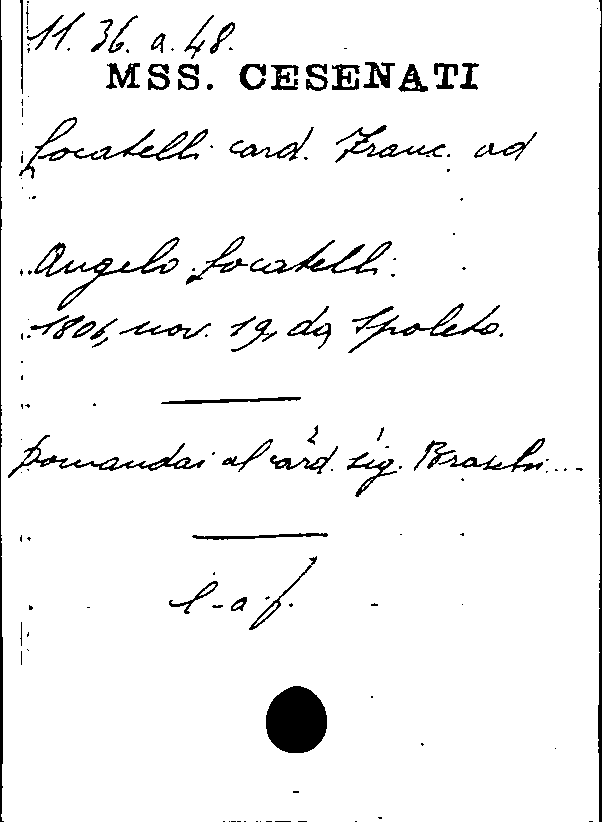 11. 36. a. 48.
MSS. CESENATI
Locatelli card. Franc. ad
Angelo Locatelli.
1806, nov. 19, da Spoleto.
2 1
Domandai al card. sig. Braschi...
l-a f.